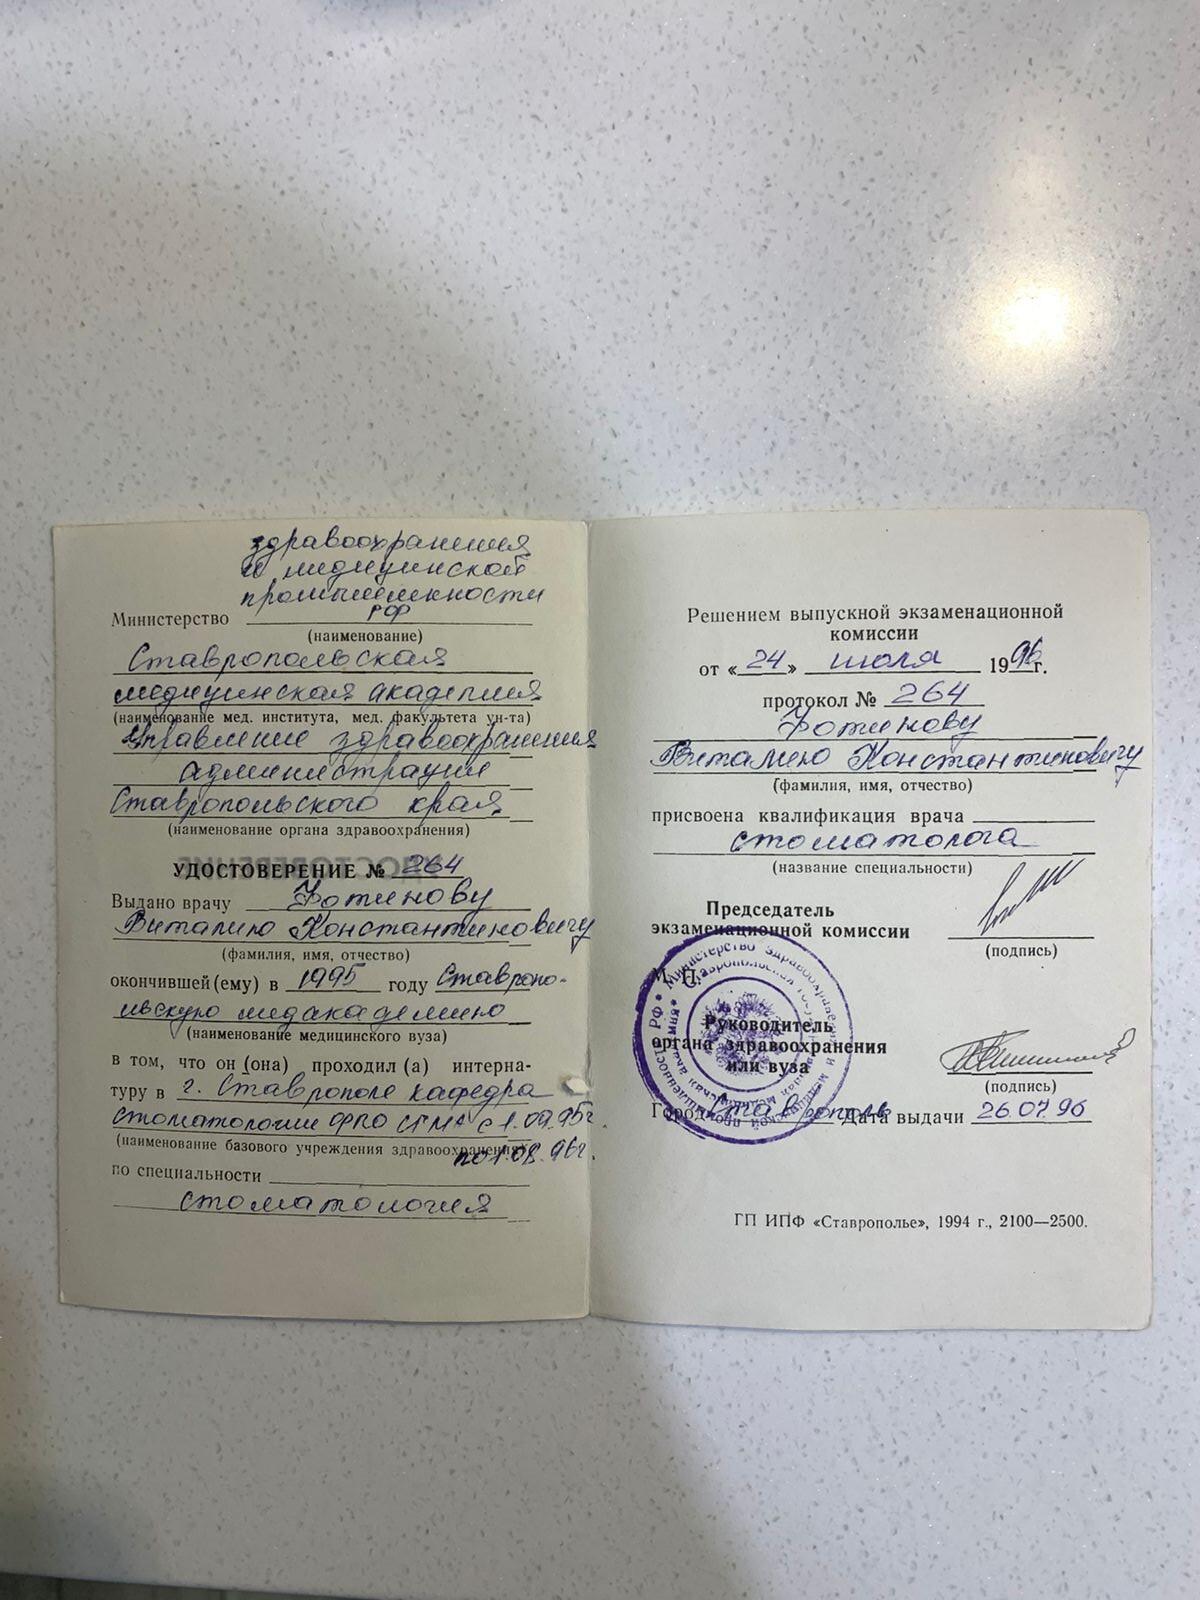 здравоохранения
и медицинской
промышленности
Министерство РФ
(наименование)
Ставропольская
медицинская академия
(наименование мед. института, мед. факультета ун-та)
Управление здравоохранения
администрации
Ставропольского края
(наименование органа здравоохранения)
УДОСТОВЕРЕНИЕ № 264
Выдано врачу Фотинову
Виталию Константиновичу
(фамилия, имя, отчество)
окончившей (ему) в 1995 году Ставропо-
льскую медакадемию
(наименование медицинского вуза)
в том, что он (она) проходил (а) интерна-
туру в г. Ставрополе кафедра
стоматологии ФПО СГМА с 1.09.95г.
(наименование базового учреждения здравоохранения)
по 1.08.96г.
по специальности
стоматология
Решением выпускной экзаменационной
комиссии
от «24» июля 1996г.
протокол № 264
Фотинову
Виталию Константиновичу
(фамилия, имя, отчество)
присвоена квалификация врача
стоматолога
(название специальности)
Председатель
экзаменационной комиссии
(подпись)
М. П.
Руководитель
органа здравоохранения
или вуза
(подпись)
Город Ставрополь Дата выдачи 26.07.96
ГП ИПФ «Ставрополье», 1994 г., 2100—2500.